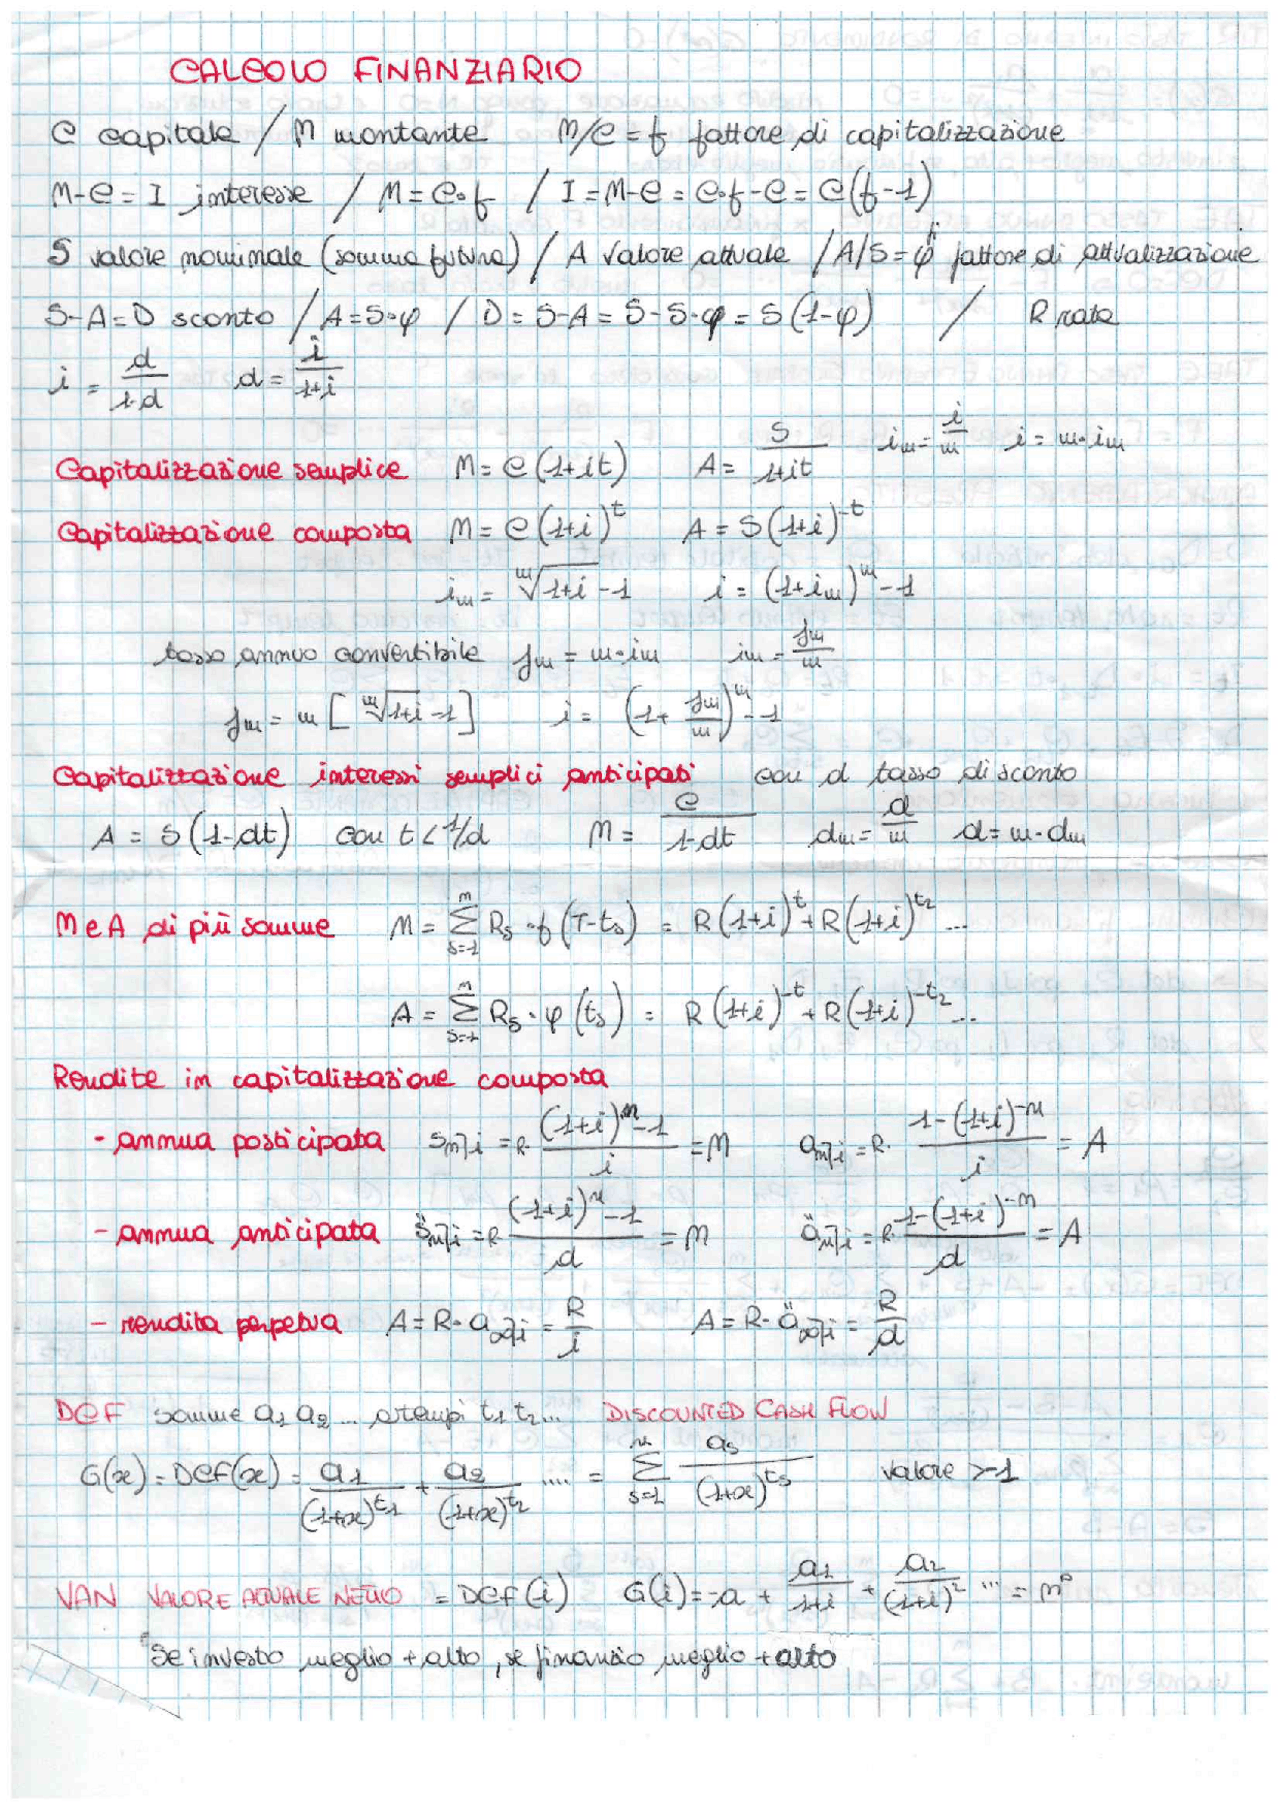 CALCOLO FINANZIARIO
C capitale / M montante M/C = f fattore di capitalizzazione
M-C = I interesse / M = C·f / I = M-C = C·f-C = C(f-1)
S valore nominale (somma futura) / A valore attuale / A/S = φ fattore di attualizzazione
S-A = D sconto / A = S·φ / D = S-A = S-S·φ = S(1-φ) / R rata
i = d/(1-d) d = i/(1+i)
Capitalizzazione semplice M = C(1+it) A = S/(1+it) im = i/m i = m·im
Capitalizzazione composta M = C(1+i)^t A = S(1+i)^-t
im = ᵐ√(1+i) -1 i = (1+im)^m -1
tasso annuo convertibile Jm = m·im im = Jm/m
Jm = m[ᵐ√(1+i) -1] i = (1 + Jm/m)^m -1
Capitalizzazione interessi semplici anticipati con d tasso di sconto
A = S(1-dt) con t < 1/d M = C/(1-dt) dm = d/m d = m·dm
M e A di più somme M = Σ_{s=1}^{n} Rs · f(T-ts) = R(1+i)^t + R(1+i)^t2 ...
A = Σ_{s=1}^{n} Rs · φ(ts) = R(1+i)^-t + R(1+i)^-t2 ...
Rendite in capitalizzazione composta
- annua posticipata s n⌉i = R· ((1+i)^n -1)/i = M a n⌉i = R· (1-(1+i)^-n)/i = A
- annua anticipata s̈ n⌉i = R ((1+i)^n -1)/d = M ä n⌉i = R· (1-(1+i)^-n)/d = A
- rendita perpetua A = R· a ∞⌉i = R/i A = R· ä ∞⌉i = R/d
DCF somme a1 a2 ... a tempi t1 t2 ... DISCOUNTED CASH FLOW
G(x) = DCF(x) = a1/(1+x)^t1 + a2/(1+x)^t2 .... = Σ_{s=1}^{n} as/(1+x)^ts valore >-1
VAN VALORE ATTUALE NETTO = DCF(i) G(i) = -a + a1/(1+i) + a2/(1+i)^2 ... = n°
Se investo meglio + alto, se finanzio meglio + alto